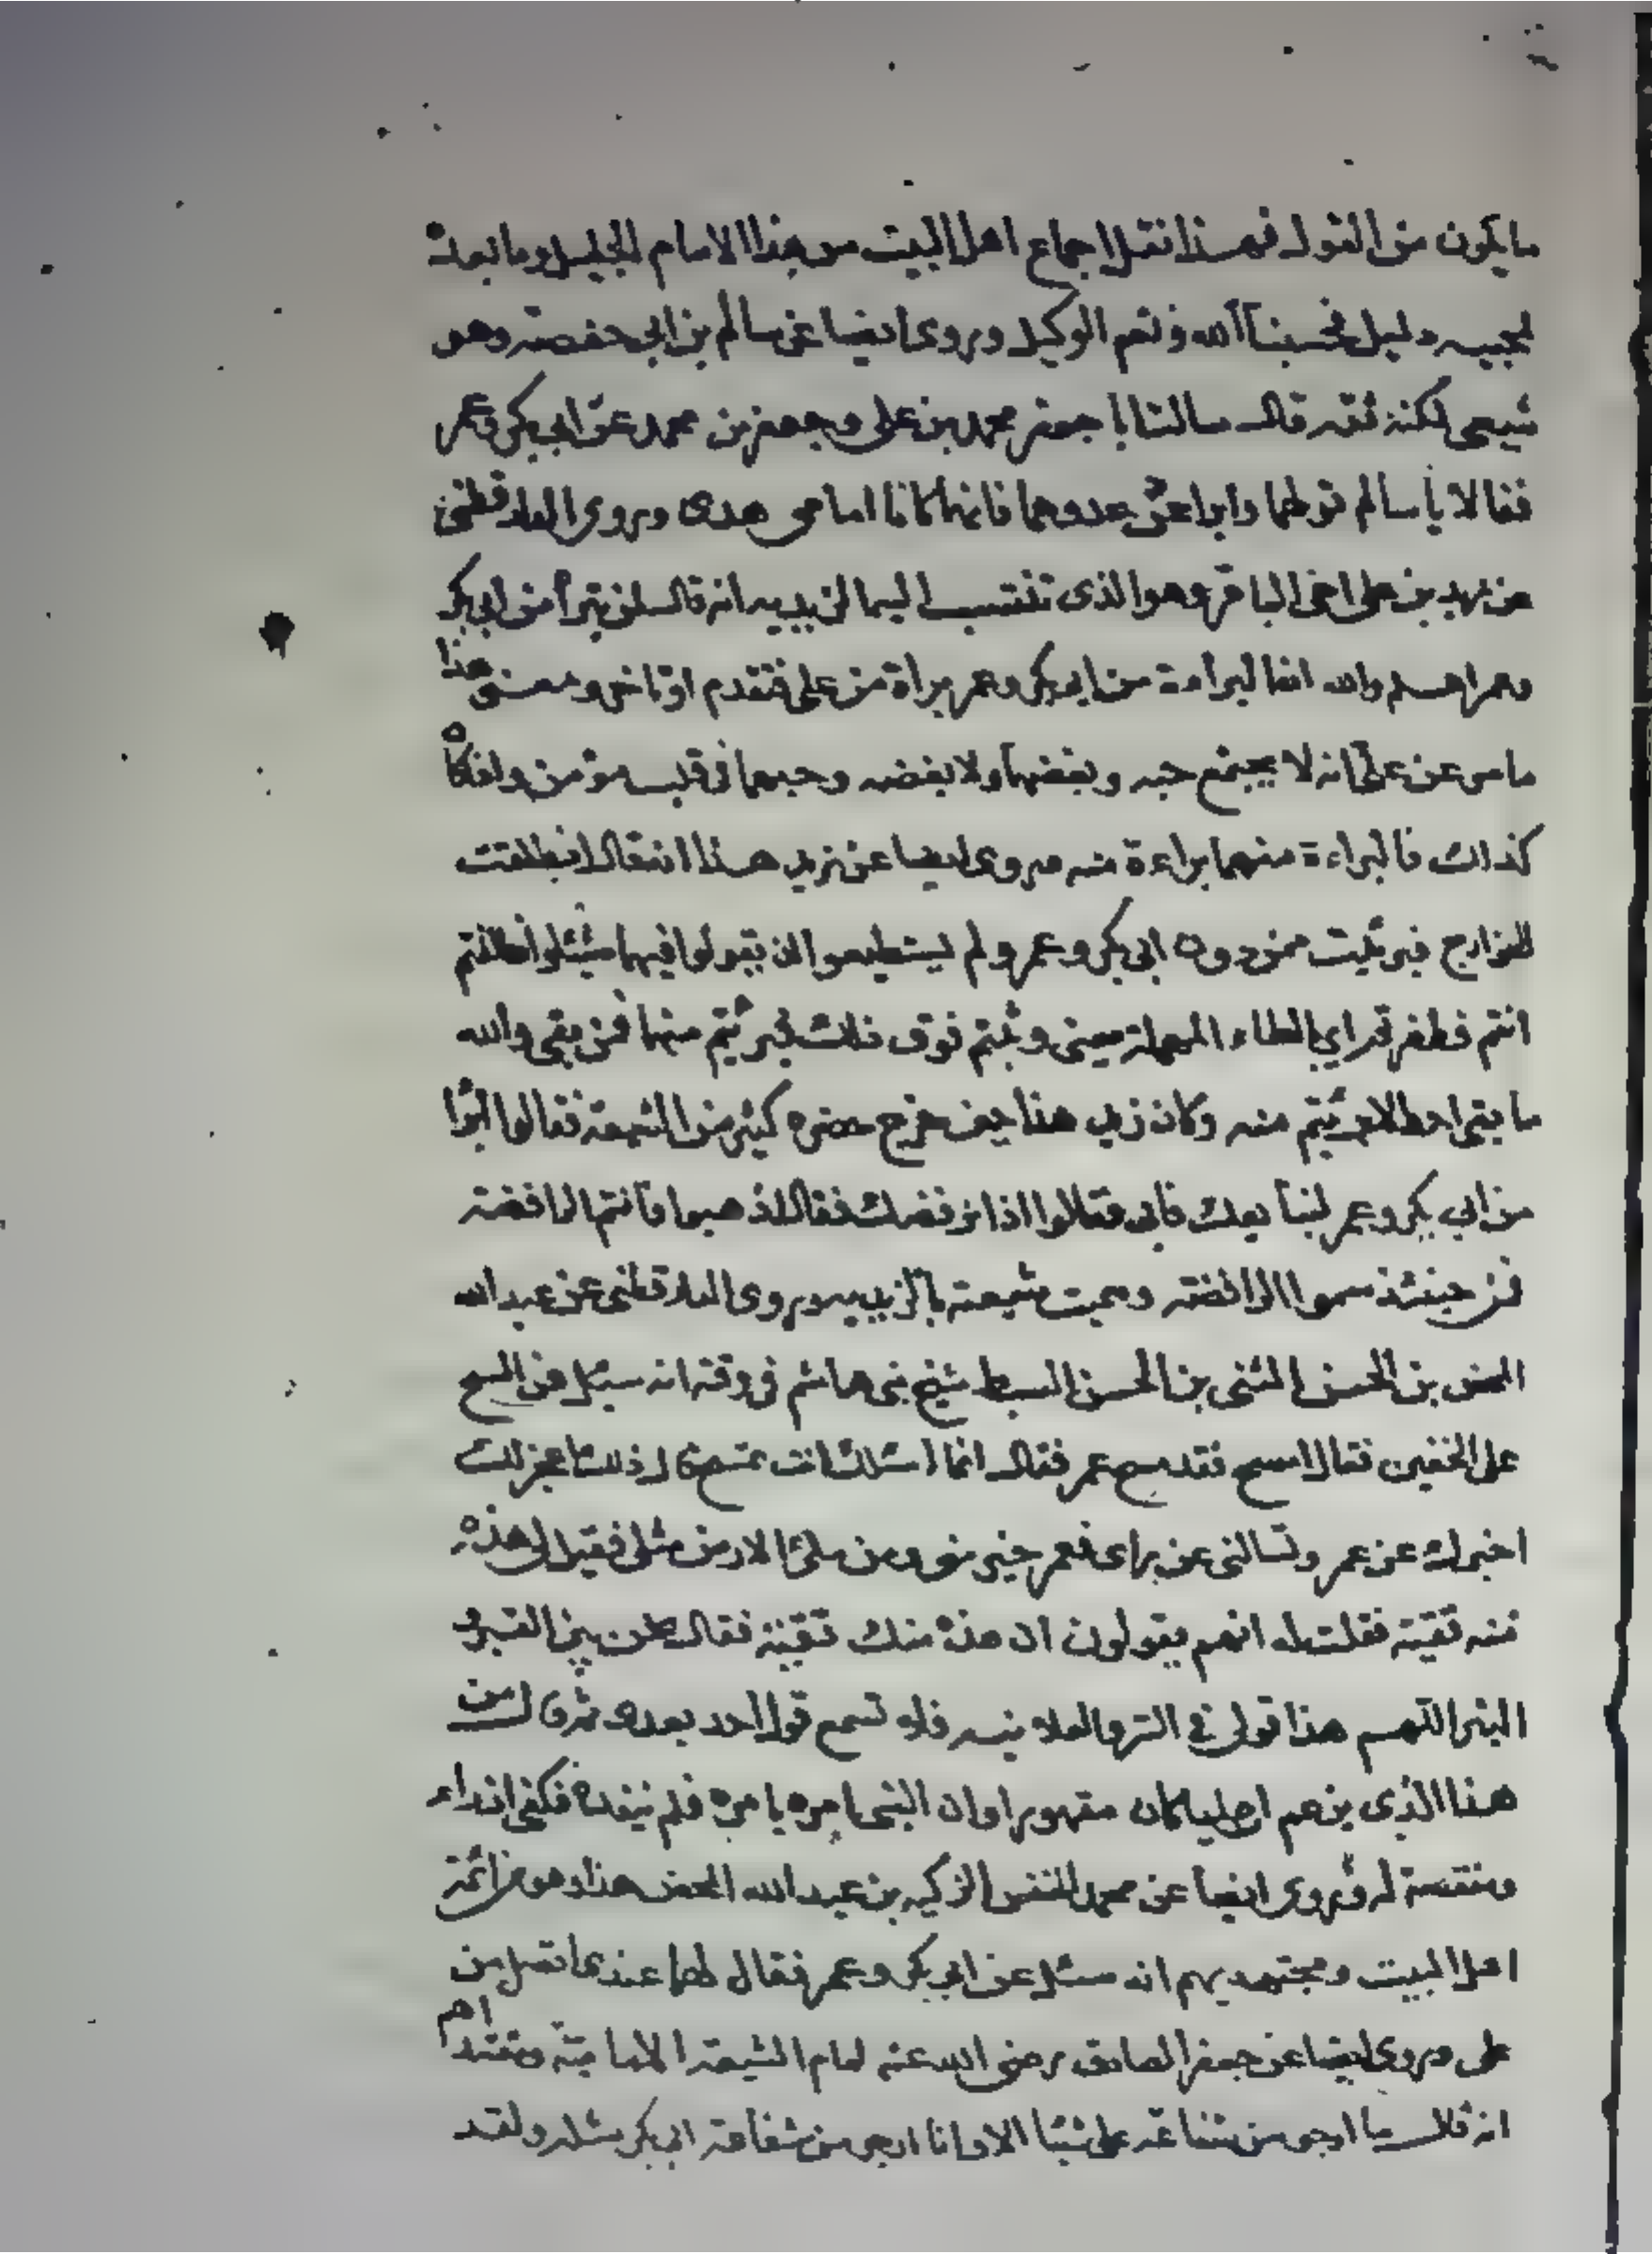 ما يكون من القول فهذا نقل اجماع اهل البيت من هذا الامام الجليل وما بعده
لمجيبه دليل فحسبنا الله ونعم الوكيل وروى ايضا عن سالم بن ابي حفصة وهو
شيعي لكنه ثقة قال سالت ابا جعفر محمد بن علي وجعفر بن محمد عن ابي بكر وعمر
فقالا يا سالم تولهما وابرا عن عدوهما فانهما كانا امامي هدى وروى الدارقطني
عن زيد بن علي اخي الباقر وهو الذي تنتسب اليه الزيدية انه قال لمن يتبرأ من ابي بكر
وعمر اعلم والله ان البراءة من ابي بكر وعمر براة من علي فتقدم او تاخر ومعنى هذا
ما مر عن علي انه لا يجتمع حبه وبغضهما ولا بغضه وحبهما في قلب مؤمن واذا كان
كذلك فالبراءة منهما براءة منه وروى ايضا عن زيد هذا انه قال انطلقت
الخوارج فبرئت ممن دون ابي بكر وعمر ولم يستطيعوا ان يقولوا فيهما شيئا وانطلقتم
انتم فطفرتم اي بالطاء المهملة بمعنى وثبتم فوق ذلك فبرئتم منهما فمن بقي والله
ما بقي احد الا برئتم منه وكان زيد هذا حين خرج حضره كثير من الشيعة فقالوا ابرا
من ابي بكر وعمر لنبايعك فابى فقالوا اذا نرفضك فقال اذهبوا فانتم الرافضة
فمن حينئذ سموا الرافضة وسميت شيعته بالزيدية وروى الدارقطني عن عبد الله
المحض بن الحسن المثنى بن الحسن السبط شيخ بني هاشم في وقته انه سئل عن المسح
على الخفين فقال امسح فقد مسح عمر فقال انما اسئلك انت تمسح قال ذلك اعجز لك
اخبرك عن عمر وتسالني عن راى فعمر خير مني ومن ملئ الارض مثلي فقيل له هذه
منه تقية فقلت له انهم يقولون ان هذه منك تقية فقال نحن بين القبر و
المنبر اللهم هذا قولي في السر والعلانية فلا تسمع قول احد بعدي ثم قال من
هذا الذي يزعم ان عليا كان مقهورا وان النبي امره بامره فلم ينفده فكفى ازراء
ومنقصة له وروى ايضا عن محمد النفس الزكيه بن عبد الله المحض هذا وهو من ائمة
اهل البيت ومجتهديهم انه سئل عن ابي بكر وعمر فقال لهما عندي افضل من
علي وروى ايضا عن جعفر الصادق رضي الله عنه امام الشيعة الامامية ومقتداهم
انه قال ما ارجو من شفاعة علي شيئا الا وانا ارجو من شفاعة ابي بكر مثله ولقد